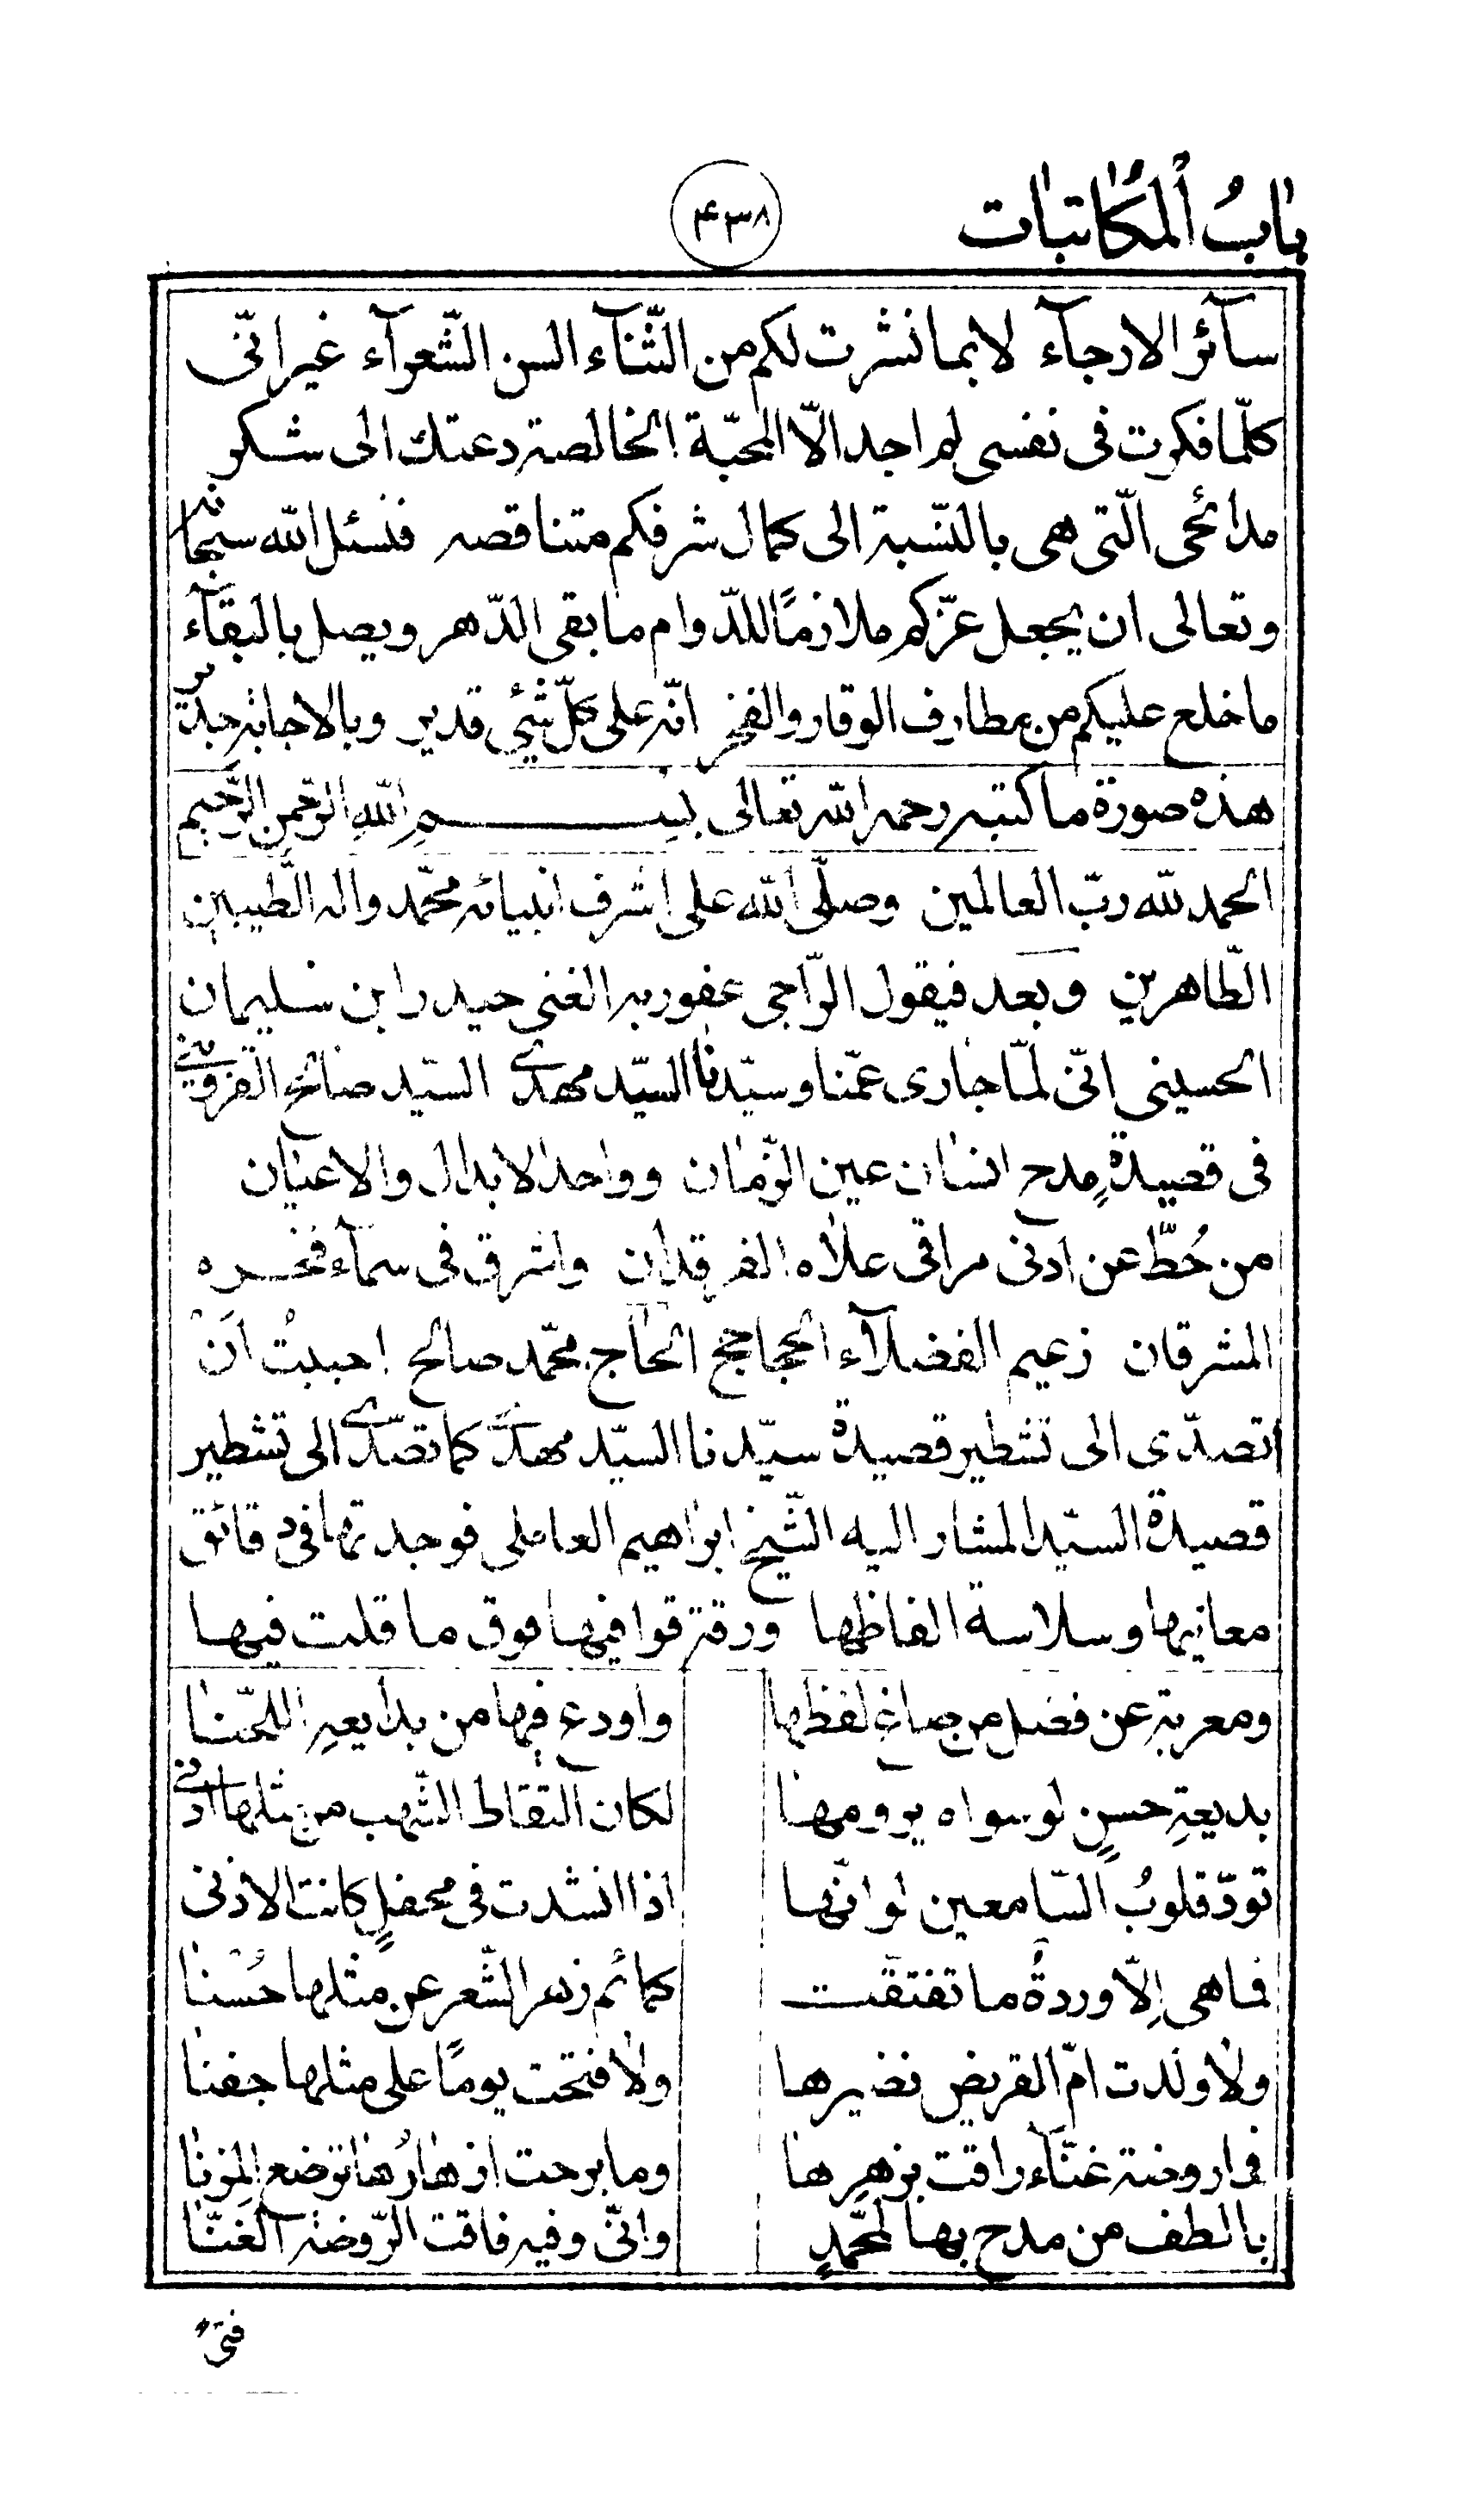 بابُ المكاتبات
۴۳۸
سآئر الارجآء لا بما نشرت لكم من الثّنآء السن الشّعرآء غير انّى
كلّما فكرت فى نفسى لم اجد الّا المحبّة الخالصة دعتك الى شكر
مدائحى الّتى هى بالنّسبة الى كمال شرفكم متناقصه فنسئل الله سبحانه
وتعالى ان يجعل عزّكم ملازمًا للدّوام ما بقى الدّهر ويصل بالبقآء
ما خلع عليكم من مطارف الوقار والفخر انّه على كلّ شئ قدير وبالاجابة جدير
هذه صورة ما كتبه رحمه الله تعالى بسم الله الرّحمن الرّحيم
الحمد لله ربّ العالمين وصلّى الله على اشرف انبيائه محمّد واله الطّيبين
الطّاهرين وبعد فيقول الرّاجى عفو ربه الغنى حيدر ابن سليمان
الحسينى انّى لمّا جارى عمّنا وسيّدنا السيّد مهدى السيّد صالح القزوينى
فى قصيدةِ مدح انسان عين الزّمان وواحد الابدال والاعيان
من حُطّ عن ادنى مراقى علاه الفرقدان واشرق فى سمآء فخره
المشرقان زعيم الفضلآء الحجاجح الحاج محمّد صالح احببتُ اَنْ
اتصدّى الى تشطير قصيدة سيّدنا السيّد مهدى كما تصدّى الى تشطير
قصيدة السيّد المشار اليه الشّيخ ابراهيم العاملى فوجدتها فى دقائق
معانيها وسلاسة الفاظها ورقة قوافيها فوق ما قلت فيها
ومعربةِ عن فضل من صاغ لفظها واودع فيها من بدايعهِ اللحنا
بديعةِ حسنٍ لو سواه يرومها لكان التقاط الشّهب من مثلها ادنى
تودّ قلوبُ السّامعين لو انّها اذا انشدت فى محفلٍ كانت الاذنى
فما هى اِلّا وردةً ما تفتقت كمائم زهر الشّعر عن مثلها حُسْنا
ولا ولدت امّ القريض نضيرها ولا فتحت يومًا على مثلها جفنا
فما روضة غنّآء راقت بزهرها وما برحت ازهارُها ترضع المزنا
بالطف من مدح بها لمحمّدٍ وانّى وفيه فاقت الرّوضة الغنّا
فتى